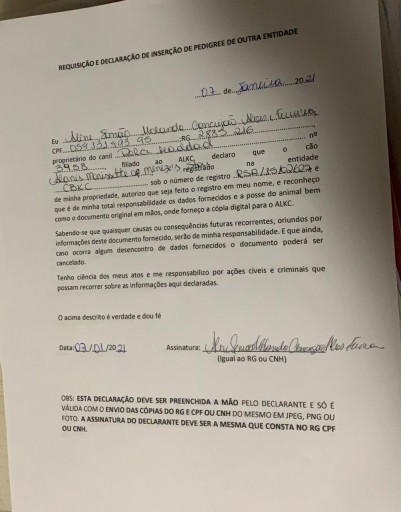 REQUISIÇÃO E DECLARAÇÃO DE INSERÇÃO DE PEDIGREE DE OUTRA ENTIDADE
07 de Janeiro 2021
Eu Aline Simão
CPF RG
proprietário do canil nº
3958 filiado ao ALKC, declaro que o cão
registrado na entidade
CBKC sob o número de registro é
de minha propriedade, autorizo que seja feito o registro em meu nome, e reconheço
que é de minha total responsabilidade os dados fornecidos e a posse do animal bem
como o documento original em mãos, onde forneço a cópia digital para o ALKC.
Sabendo-se que quaisquer causas ou consequências futuras recorrentes, oriundos por
informações deste documento fornecido, serão de minha responsabilidade. E que ainda,
caso ocorra algum desencontro de dados fornecidos o documento poderá ser
cancelado.
Tenho ciência dos meus atos e me responsabilizo por ações cíveis e criminais que
possam recorrer sobre as informações aqui declaradas.
O acima descrito é verdade e dou fé
Data: 07/01/2021 Assinatura:
(Igual ao RG ou CNH)
OBS: ESTA DECLARAÇÃO DEVE SER PREENCHIDA A MÃO PELO DECLARANTE E SÓ É
VÁLIDA COM O ENVIO DAS CÓPIAS DO RG E CPF OU CNH DO MESMO EM JPEG, PNG OU
FOTO. A ASSINATURA DO DECLARANTE DEVE SER A MESMA QUE CONSTA NO RG CPF
OU CNH.